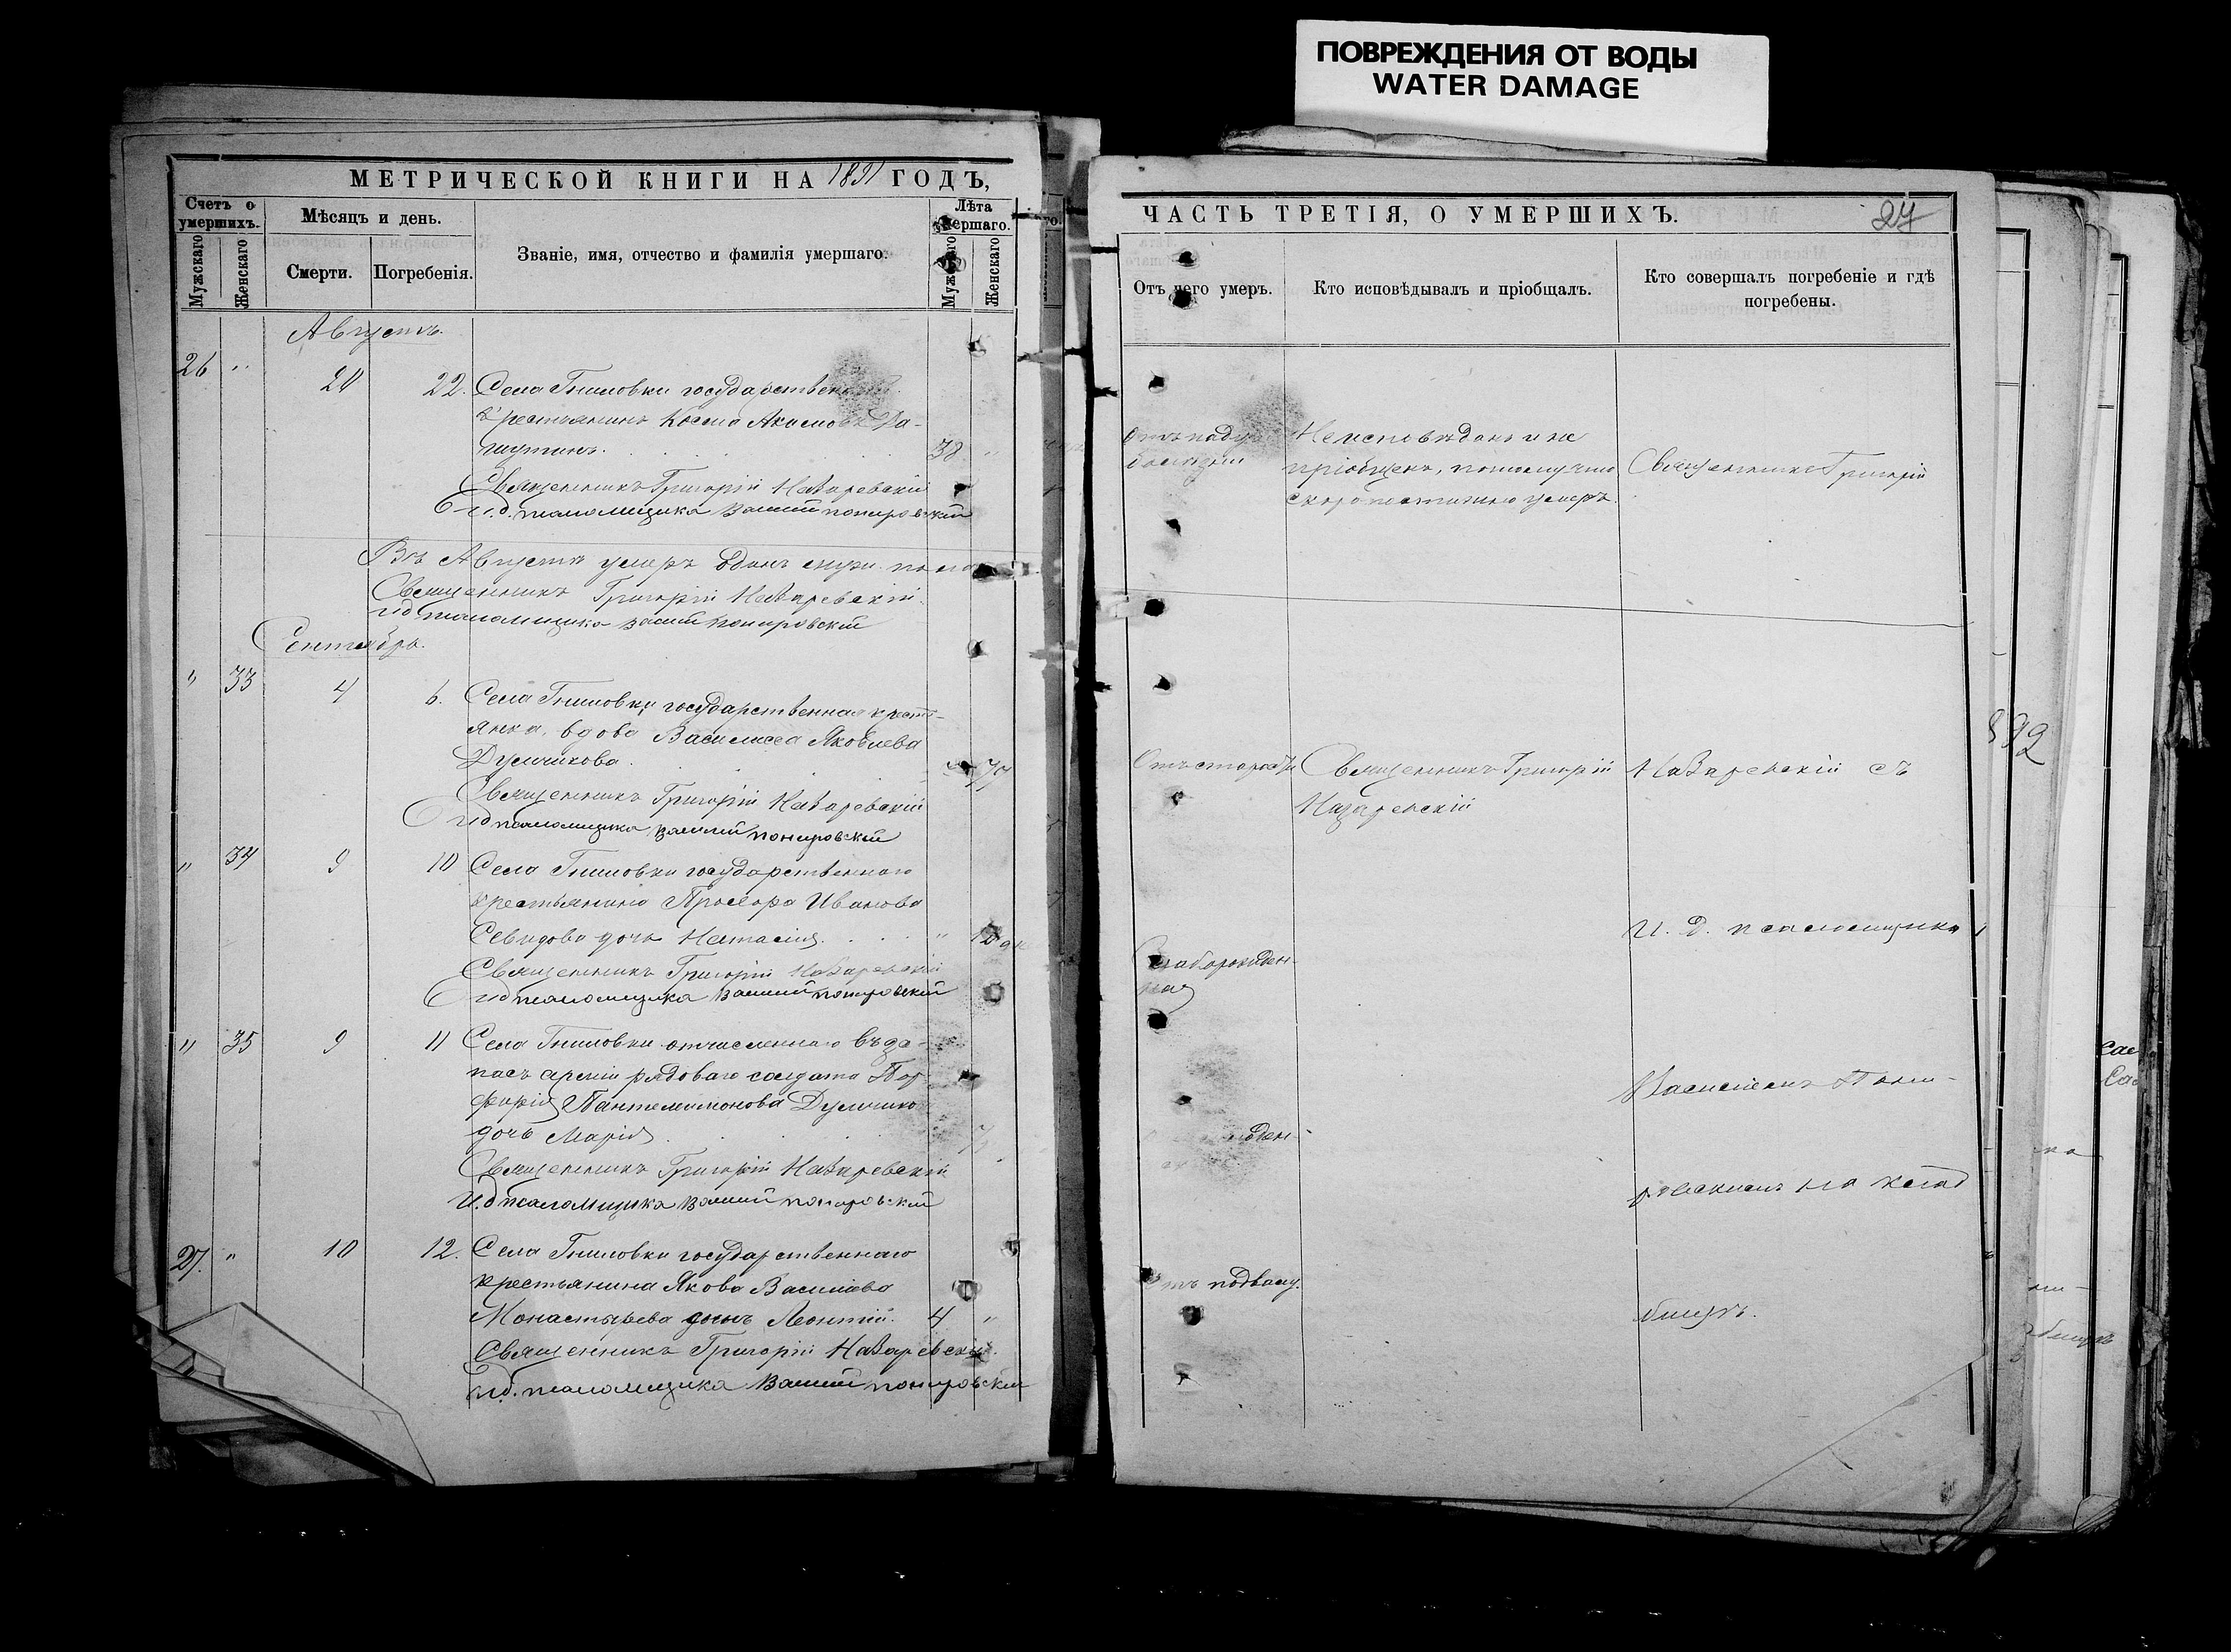 ПОВРЕЖДЕНИЯ ОТ ВОДЫ
WATER DAMAGE
МЕТРИЧЕСКОЙ КНИГИ НА 1891 ГОДЪ,
Счетъ о умершихъ.
Мужскаго
Женскаго
Мѣсяцъ и день.
Смерти.
Погребенія.
Званіе, имя, отчество и фамилія умершаго.
Лѣта умершаго.
Мужскаго
Женскаго
Августъ.
26 " 20 22. Села Гниловки государственный
крестьянинъ Косма Акимовъ Ра-
38 "
Священникъ Григорій Назаревскій
И. д. псаломщика Василій Понировскій
Въ Августѣ умеръ одинъ муж. пола
Священникъ Григорій Назаревскій.
И д псаломщика Василій Понировскій
Сентябрь.
" 33 4 6. Села Гниловки государственная кресть-
янка, вдова Василисса Яковлева
Думчикова. 77
Священникъ Григорій Назаревскій
И д псаломщика Василій Понировскій
" 34 9 10 Села Гниловки государственнаго
крестьянина Прохора Иванова
дочь Наталія. "
Священникъ Григорій Назаревскій
И д псаломщика Василій Понировскій
" 35 9 11 Села Гниловки отчисленнаго въ за-
пасъ арміи рядоваго солдата Пор-
фирія Пантелеимонова Думчикова
дочь Марія
Священникъ Григорій Назаревскій
И. д псаломщика Василій Понировскій
27. " 10 12. Села Гниловки государственнаго
крестьянина Якова Василіева
Монастырева сынъ Леонтій. 4 "
Священникъ Григорій Назаревскій.
И д. псаломщика Василій Понировскій
ЧАСТЬ ТРЕТІЯ, О УМЕРШИХЪ.
27
Отъ чего умеръ.
Кто исповѣдывалъ и пріобщалъ.
Кто совершалъ погребеніе и гдѣ погребены.
болѣзни
Неисповѣданъ и не
пріобщенъ, потому что
скоропостижно умеръ.
Священникъ Григорій
Отъ старости
Священникъ Григорій
Назаревскій
Назаревскій съ
И. д. псаломщика
Слаборожден-
ная
Василіемъ Пони-
ровскимъ на клад
бищѣ.
892